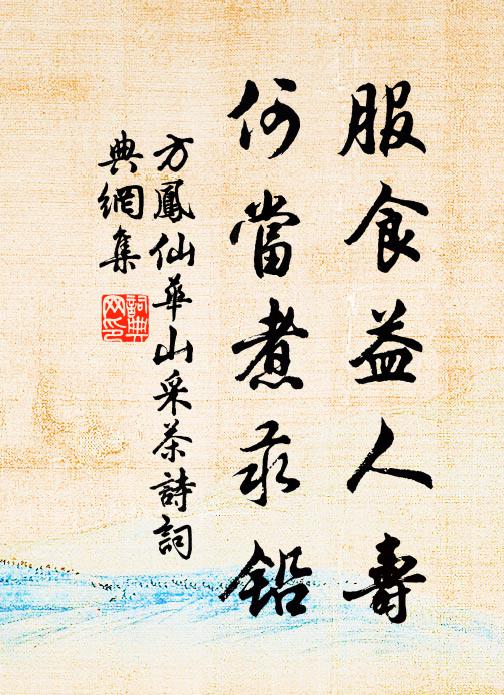 服食益人壽
何當煮汞鉛
方鳳仙華山采茶詩詞
典網集
詞典
网印